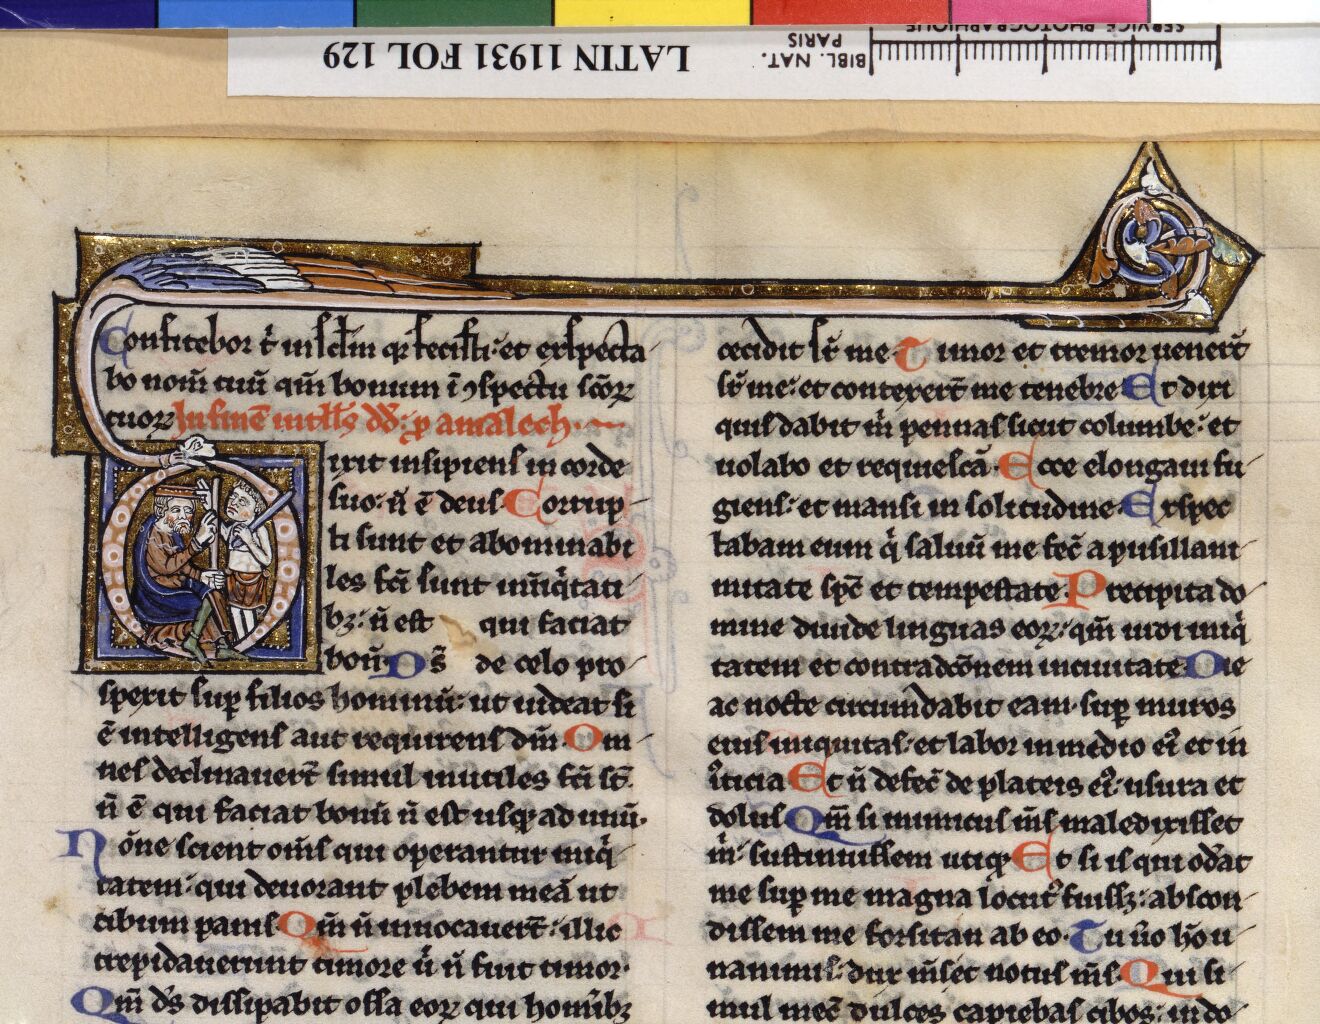 LATIN 11931 FOL 129
BIBL. NAT.
PARIS
SERVICE PHOTOGRAPHIQUE
Confitebor t̄ in sc̄lm qr fecisti: et exspecta
bo nom̄ tuū qm̄ bonum ē ꝯspectu sc̄oꝝ
tuoꝝ In finē
Dixit insipiens in corde
suo: n̄ ē deus Corrup
ti sunt et abominabi
les fc̄i sunt iniq̇tati
bꝫ: n̄ est qui faciat
bonū D̄s de celo pro
spexit suꝑ filios hominū: ut uideat si
ē intelligens aut requirens dm̄ Om
nes declinauer̄t simul inutiles fc̄i st̄
n̄ ē qui faciat bonū n̄ est usqꝫ ad unū
Nōne scient om̄s qui operantur iniq̇
tatem: qui deuorant plebem meā ut
cibum panis Qm̄ n̄ inuocauer̄t: illic
trepidauerunt timore u̇ n̄ fuit timor
Qm̄ d̄s dissipabit ossa eoꝝ qui hominibꝫ
cecidit sr̄ me Timor et tremor uener̄t
sr̄ me: et contexer̄t me tenebre Et dixi
quis dabit m̄ pennas sicut columbe: et
uolabo et requiescā Ecce elongaui fu
giens: et mansi in solitudine Exspec
tabam eum q̇ saluū me fec̄ a pusillani
mitate sp̄c et tempestate Precipita do
mine diuide linguas eoꝝ: qm̄ uidi iniq̇
tatem et contradc̄onem in ciuitate Die
ac nocte circumdabit eam suꝑ muros
eius iniquitas: et labor in medio eꝰ et in
iusticia Et n̄ defec̄ de plateis eꝰ: usura et
dolus Qm̄ si inimicus m̄s maledixisset
m̄: sustinuissem utiqꝫ Et si is qui oderat
me super me magna locutꝰ fuissꝫ: abscon
dissem me forsitan ab eo Tu u̇o ho u
nanimis: dux m̄s et notus m̄s Qui si
mul mec̄ dulces capiebas cibos: in do